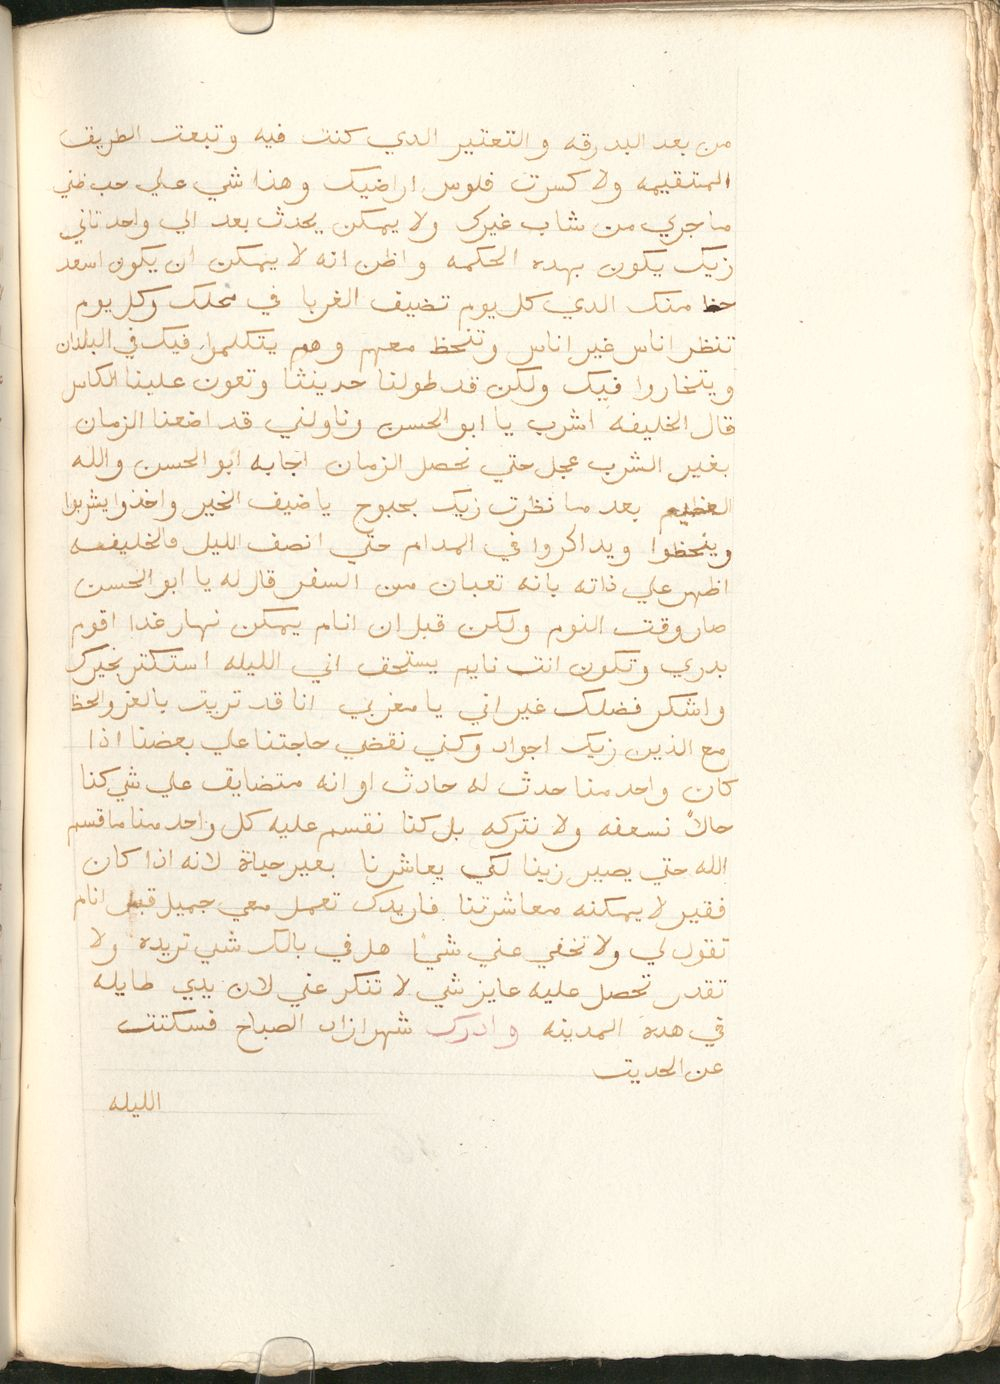 من بعد البدرقه والتعتير الدي كنت فيه وتبعت الطريق
المتقيمه ولا كسرت فلوس اراضيك وهذا شي علي حب ظني
ما جري من شاب غيرك ولا يمكن يحدث بعد الي واحد تاني
زيك يكون بهده الحكمه واظن انه لا يمكن ان يكون اسعد
حظ منك الدي كل يوم تضيف الغربا في محلك وكل يوم
تنظر اناس غير اناس وتنحظ معهم وهم يتكلموا فيك في البلدان
ويتخاروا فيك ولكن قد طولنا حديثنا وتعون علينا الكاس
قال الخليفه اشرب يا ابو الحسن وناولني قد اضعنا الزمان
بغير الشرب عجل حتي نحصل الزمان اجابه ابو الحسن والله
العظيم بعد ما نظرت زيك بحبوح يا ضيف الخير واخذوا يشربوا
وينحظوا ويداكروا في المدام حتي انصف الليل فالخليفه
اظهر علي ذاته بانه تعبان من السفر قال له يا ابو الحسن
صار وقت النوم ولكن قبل ان انام يمكن نهار غدا اقوم
بدري وتكون انت نايم يستحق اني الليله استكتر بخيرك
واشكر فضلك غير اني يا مغربي انا قد تربيت بالعز والحظ
مع الذين زيك اجواد وكني نقضي حاجتنا علي بعضنا اذا
كان واحد منا حدث له حادث او انه متضايق علي شي كنا
حالاً نسعفه ولا نتركه بل كنا نقسم عليه كل واحد منا ما قسم
الله حتي يصير زينا لكي يعاشرنا بغير حياة لانه اذا كان
فقير لا يمكنه معاشرتنا فاريدك تعمل معي جميل قبل انام
تقول لي ولا تخفي عني شياً هل في بالك شي تريده ولا
تقدر تحصل عليه عايز شي لا تنكر عني لان يدي طايله
في هده المدينه وادرك شهرازاد الصباح فسكتت
عن الحديت
الليله